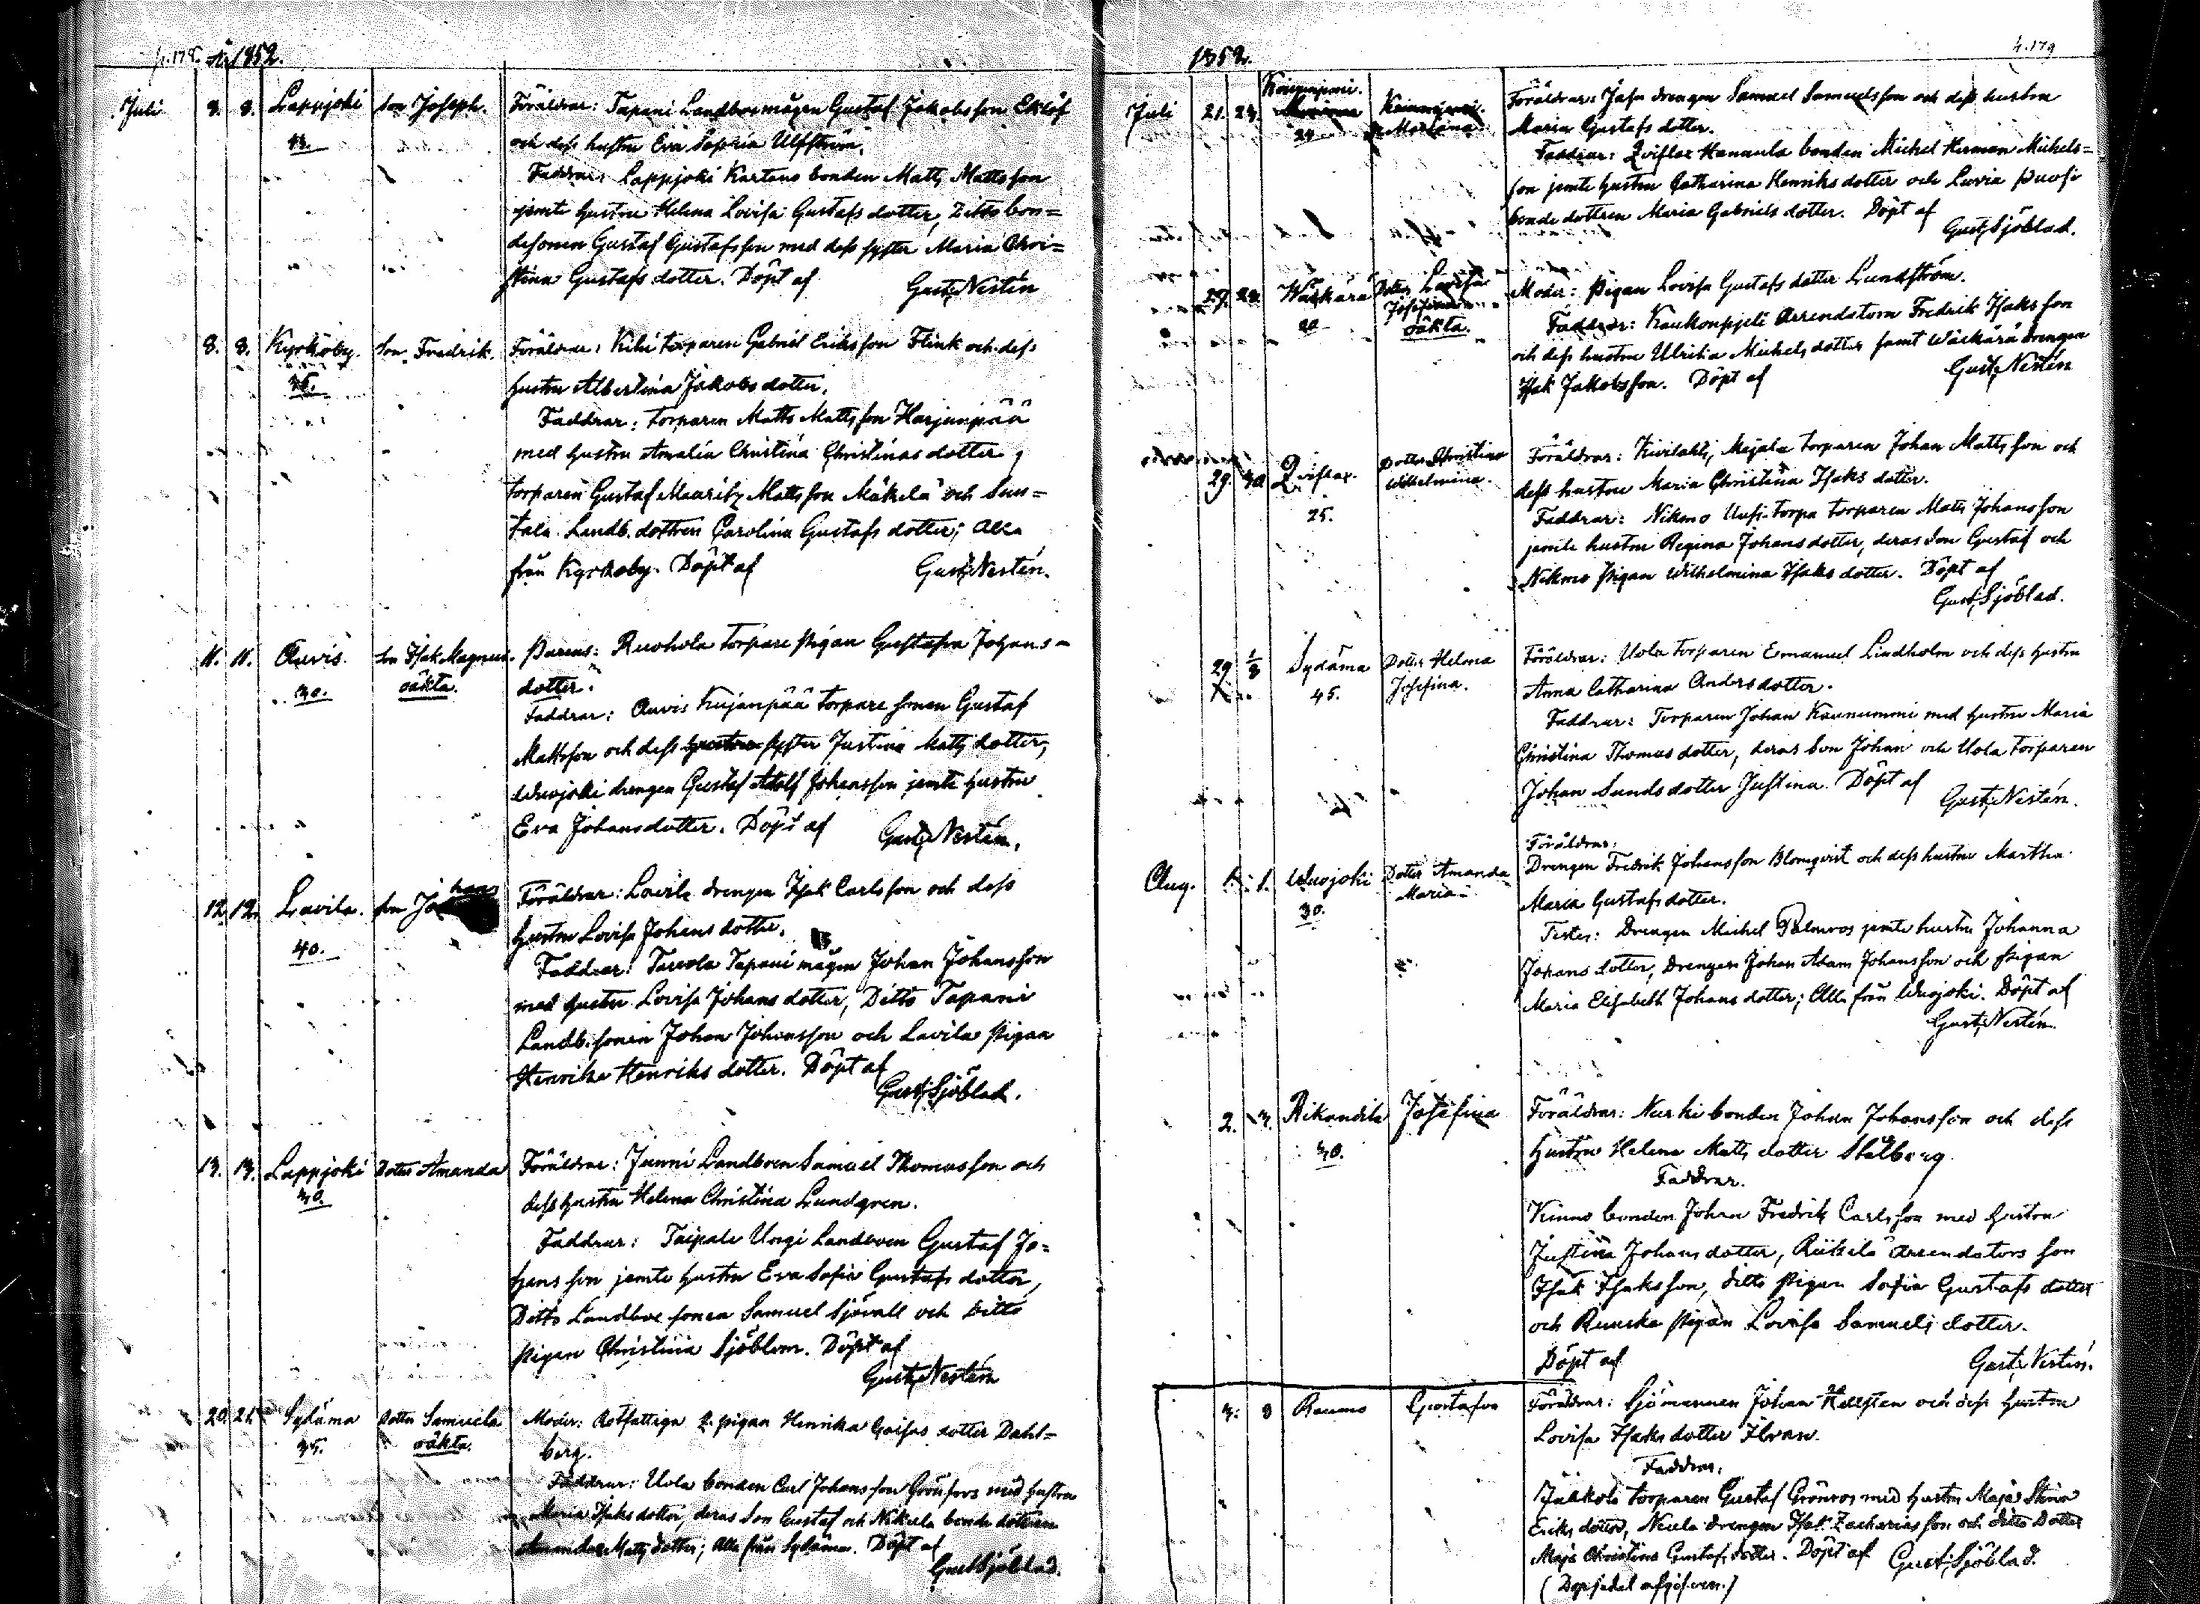 p. 178. År 1852.
Juli 8. 8. Lappjoki son Joseph. Föräldrar: Tapani Landbomågen Gustaf Jakobsson Eklöf
och dess hustru Eva Sofia Ulfström.
Faddrar: Lappjoki Kartano bonden Matts Mattsson
jemte hustru Helena Lovisa Gustafsdotter, Ditto bon=
desonen Gustaf Gustafsson med dess syster Maria Chri=
stina Gustafs dotter. Döpt af
Gust. Nestén
8. 8. Kyrkoby. son Fredrik. Föräldrar: Kihi torparen Gabriel Eriksson Flink och dess
36.
hustru Albertina Jakobsdotter.
Faddrar: torparen Matts Mattsson Harjunpää
med hustru Amalia Christina Christinas dotter,
torparen Gustaf Mauritz Mattsson Mäkelä och Sun=
tala Landb. dottren Carolina Gustafs dotter; alla
från Kyrkoby. Döpt af Gust. Nestén.
11. 11. Auvis. son Isak Magnus. Parens: Ruohola torpare pigan Gustafva Johans=
30. oäkta.
dotter.
Faddrar: Auvis Kujanpää torpare sonen Gustaf
Mattsson och dess syster Justina Matts dotter,
Wuojoki drengen Gustaf Adolf Johansson jemte hustru
Eva Johansdotter. Döpt af Gust. Nestén.
12. 12. Lavila. son Johan Föräldrar: Lavila drengen Isak Carlsson och dess
40.
hustru Lovisa Johans dotter.
Faddrar: Tarvola Tapani mågen Johan Johansson
med hustru Lovisa Johans dotter, Ditto Tapani
Landb. sonen Johan Johansson och Lavila pigan
Henrika Henriks dotter. Döpt af
Gust. Sjöblad.
13. 13. Lappjoki Dotter Amanda Föräldrar: Junni Landboen Samuel Thomasson och
30.
dess hustru Helena Christina Lundgren.
Faddrar: Taipale Ungi Landboen Gustaf Jo=
hansson jemte hustru Eva Sofia Gustafs dotter,
Ditto Landboe sonen Samuel Sjövall och Ditto
pigan Christina Sjöblom. Döpt af
Gust. Nestén
20. 21. Sydämä Dotter Samuela Moder: Rotfattiga pigan Henrika dotter Dahl=
35. oäkta.
berg.
Faddrar: Uola bonden Carl Johansson Grönfors med hustru
Maria Isaks dotter, deras son Gustaf och Nikula bonde dottren
Matts dotter; Alla från Sydämä. Döpt af
Gust. Sjöblad.
1852. p. 179
Juli 21. 23. Föräldrar: Jasu drengen Samuel Samuelsson och dess hustru
Maria Gustafs dotter.
Faddrar: Qviflax Hannula bonden Michel Herman Michels=
son jemte hustru Catharina Henriks dotter och Luvia
bonde dottren Maria Gabriels dotter. Döpt af
Gust. Sjöblad.
Wäkkärä Dotter Lovisa Moder: Pigan Lovisa Gustafs dotter Lundström.
20 Josefina
oäkta.
Faddrar: Kaukonpieli Arrendatorn Fredrik Isaksson
och dess hustru Ulrika Michels dotter samt Wäkkärä drengen
Isak Jakobsson. Döpt af Gust. Nestén
29. 30. Qviflax. Dotter Christina Föräldrar: Kivilahti, Mejala torparen Johan Mattsson och
25. Wilhelmina.
dess hustru Maria Christina Isaks dotter.
Faddrar: Nikmo Uusi-torpa torparen Matts Johansson
jemte hustru Regina Johans dotter, deras son Gustaf och
Nikmo pigan Wilhelmina Isaks dotter. Döpt af
Gust. Sjöblad.
29 1/8 Sydämä Dotter Helena Föräldrar: Uola torparen Emanuel Lindholm och dess hustru
45. Josefina.
Anna Catharina Anders dotter.
Faddrar: Torparen Johan Kaunummi med hustru Maria
Christina Thomas dotter, deras son Johan och Uola torparen
Johan Sunds dotter Justina. Döpt af
Gust. Nestén.
Föräldrar:
Aug. 1. 1. Wuojoki Dotter Amanda Drengen Fredrik Johansson Blomqvist och dess hustru Martha
30. Maria.
Maria Gustafs dotter.
Testes: Drengen Michel Palmros jemte hustru Johanna
Johans dotter, Drengen Johan Adam Johansson och pigan
Maria Elisabeth Johans dotter; Alla från Wuojoki. Döpt af
Gust. Nestén.
2. 3. Rikandila Josefina Föräldrar: Nurki bonden Johan Johansson och dess
30.
hustru Helena Matts dotter Stålberg.
Faddrar.
Kinno bonden Johan Fredrik Carlsson med hustru
Justina Johans dotter, Riikilä arrendators son
Isak Isaksson, ditto pigan Sofia Gustafs dotter
och Ruuska pigan Lovisa Samuels dotter.
Döpt af Gust. Nestén.
3. 8 Raumo Gustafva Föräldrar: Sjömannen Johan Hellsten och dess hustru
Lovisa Isaks dotter Ilvan.
Faddrar.
Jaakola torparen Gustaf Grönroos med hustru Maja Stina
Eriks dotter, Neula drengen Isak Zachariasson och ditto Dotter
Maja Christina Gustafs dotter. Döpt af Gust. Sjöblad.
(Dopsedel afgifven.)